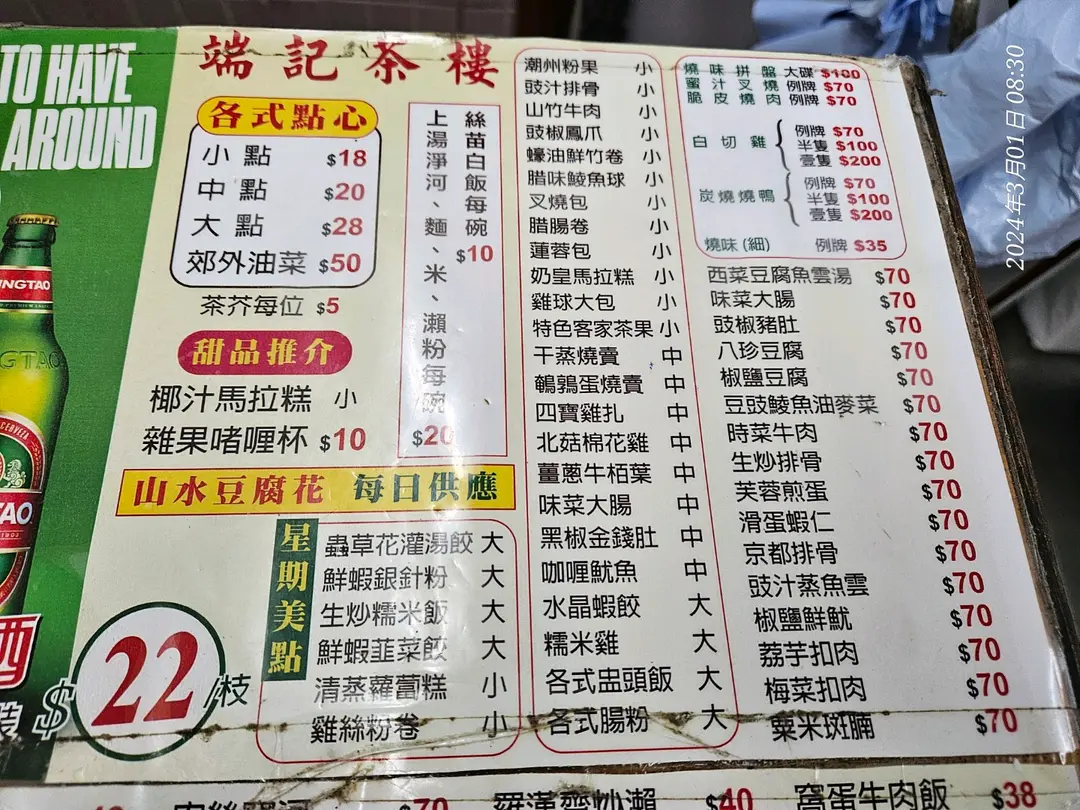 TO HAVE
AROUND
NGTAO
TAO
酒
$22/枝
端記茶樓
各式點心
小點 $18
中點 $20
大點 $28
郊外油菜 $50
茶芥每位 $5
甜品推介
椰汁馬拉糕 小
雜果啫喱杯 $10
絲苗白飯每碗 $10
上湯淨河、麵、米、瀨粉每碗 $20
山水豆腐花 每日供應
星期美點
蟲草花灌湯餃 大
鮮蝦銀針粉 大
生炒糯米飯 大
鮮蝦韮菜餃 大
清蒸蘿蔔糕 小
雞絲粉卷 小
潮州粉果 小
豉汁排骨 小
山竹牛肉 小
豉椒鳳爪 小
蠔油鮮竹卷 小
腊味鯪魚球 小
叉燒包 小
腊腸卷 小
蓮蓉包 小
奶皇馬拉糕 小
雞球大包 小
特色客家茶果 小
干蒸燒賣 中
鵪鶉蛋燒賣 中
四寶雞扎 中
北菇棉花雞 中
薑蔥牛栢葉 中
味菜大腸 中
黑椒金錢肚 中
咖喱魷魚 中
水晶蝦餃 大
糯米雞 大
各式盅頭飯 大
各式腸粉 大
燒味拼盤 大碟 $100
蜜汁叉燒 例牌 $70
脆皮燒肉 例牌 $70
白切雞
例牌 $70
半隻 $100
壹隻 $200
炭燒燒鴨
例牌 $70
半隻 $100
壹隻 $200
燒味(細) 例牌 $35
西菜豆腐魚雲湯 $70
味菜大腸 $70
豉椒豬肚 $70
八珍豆腐 $70
椒鹽豆腐 $70
豆豉鯪魚油麥菜 $70
時菜牛肉 $70
生炒排骨 $70
芙蓉煎蛋 $70
滑蛋蝦仁 $70
京都排骨 $70
豉汁蒸魚雲 $70
椒鹽鮮魷 $70
荔芋扣肉 $70
梅菜扣肉 $70
粟米斑腩 $70
$70
羅漢齋炒瀨 $40
窩蛋牛肉飯 $38
2024年3月01日 08:30